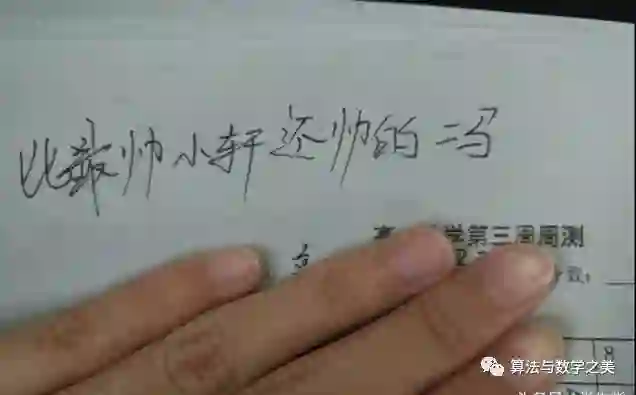 比最帅小轩还帅的二冯
学第三周周测
分数:
算法与数学之美